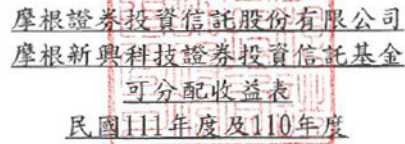 摩根證券投資信託股份有限公司
摩根新興科技證券投資信託基金
可分配收益表
民國111年度及110年度